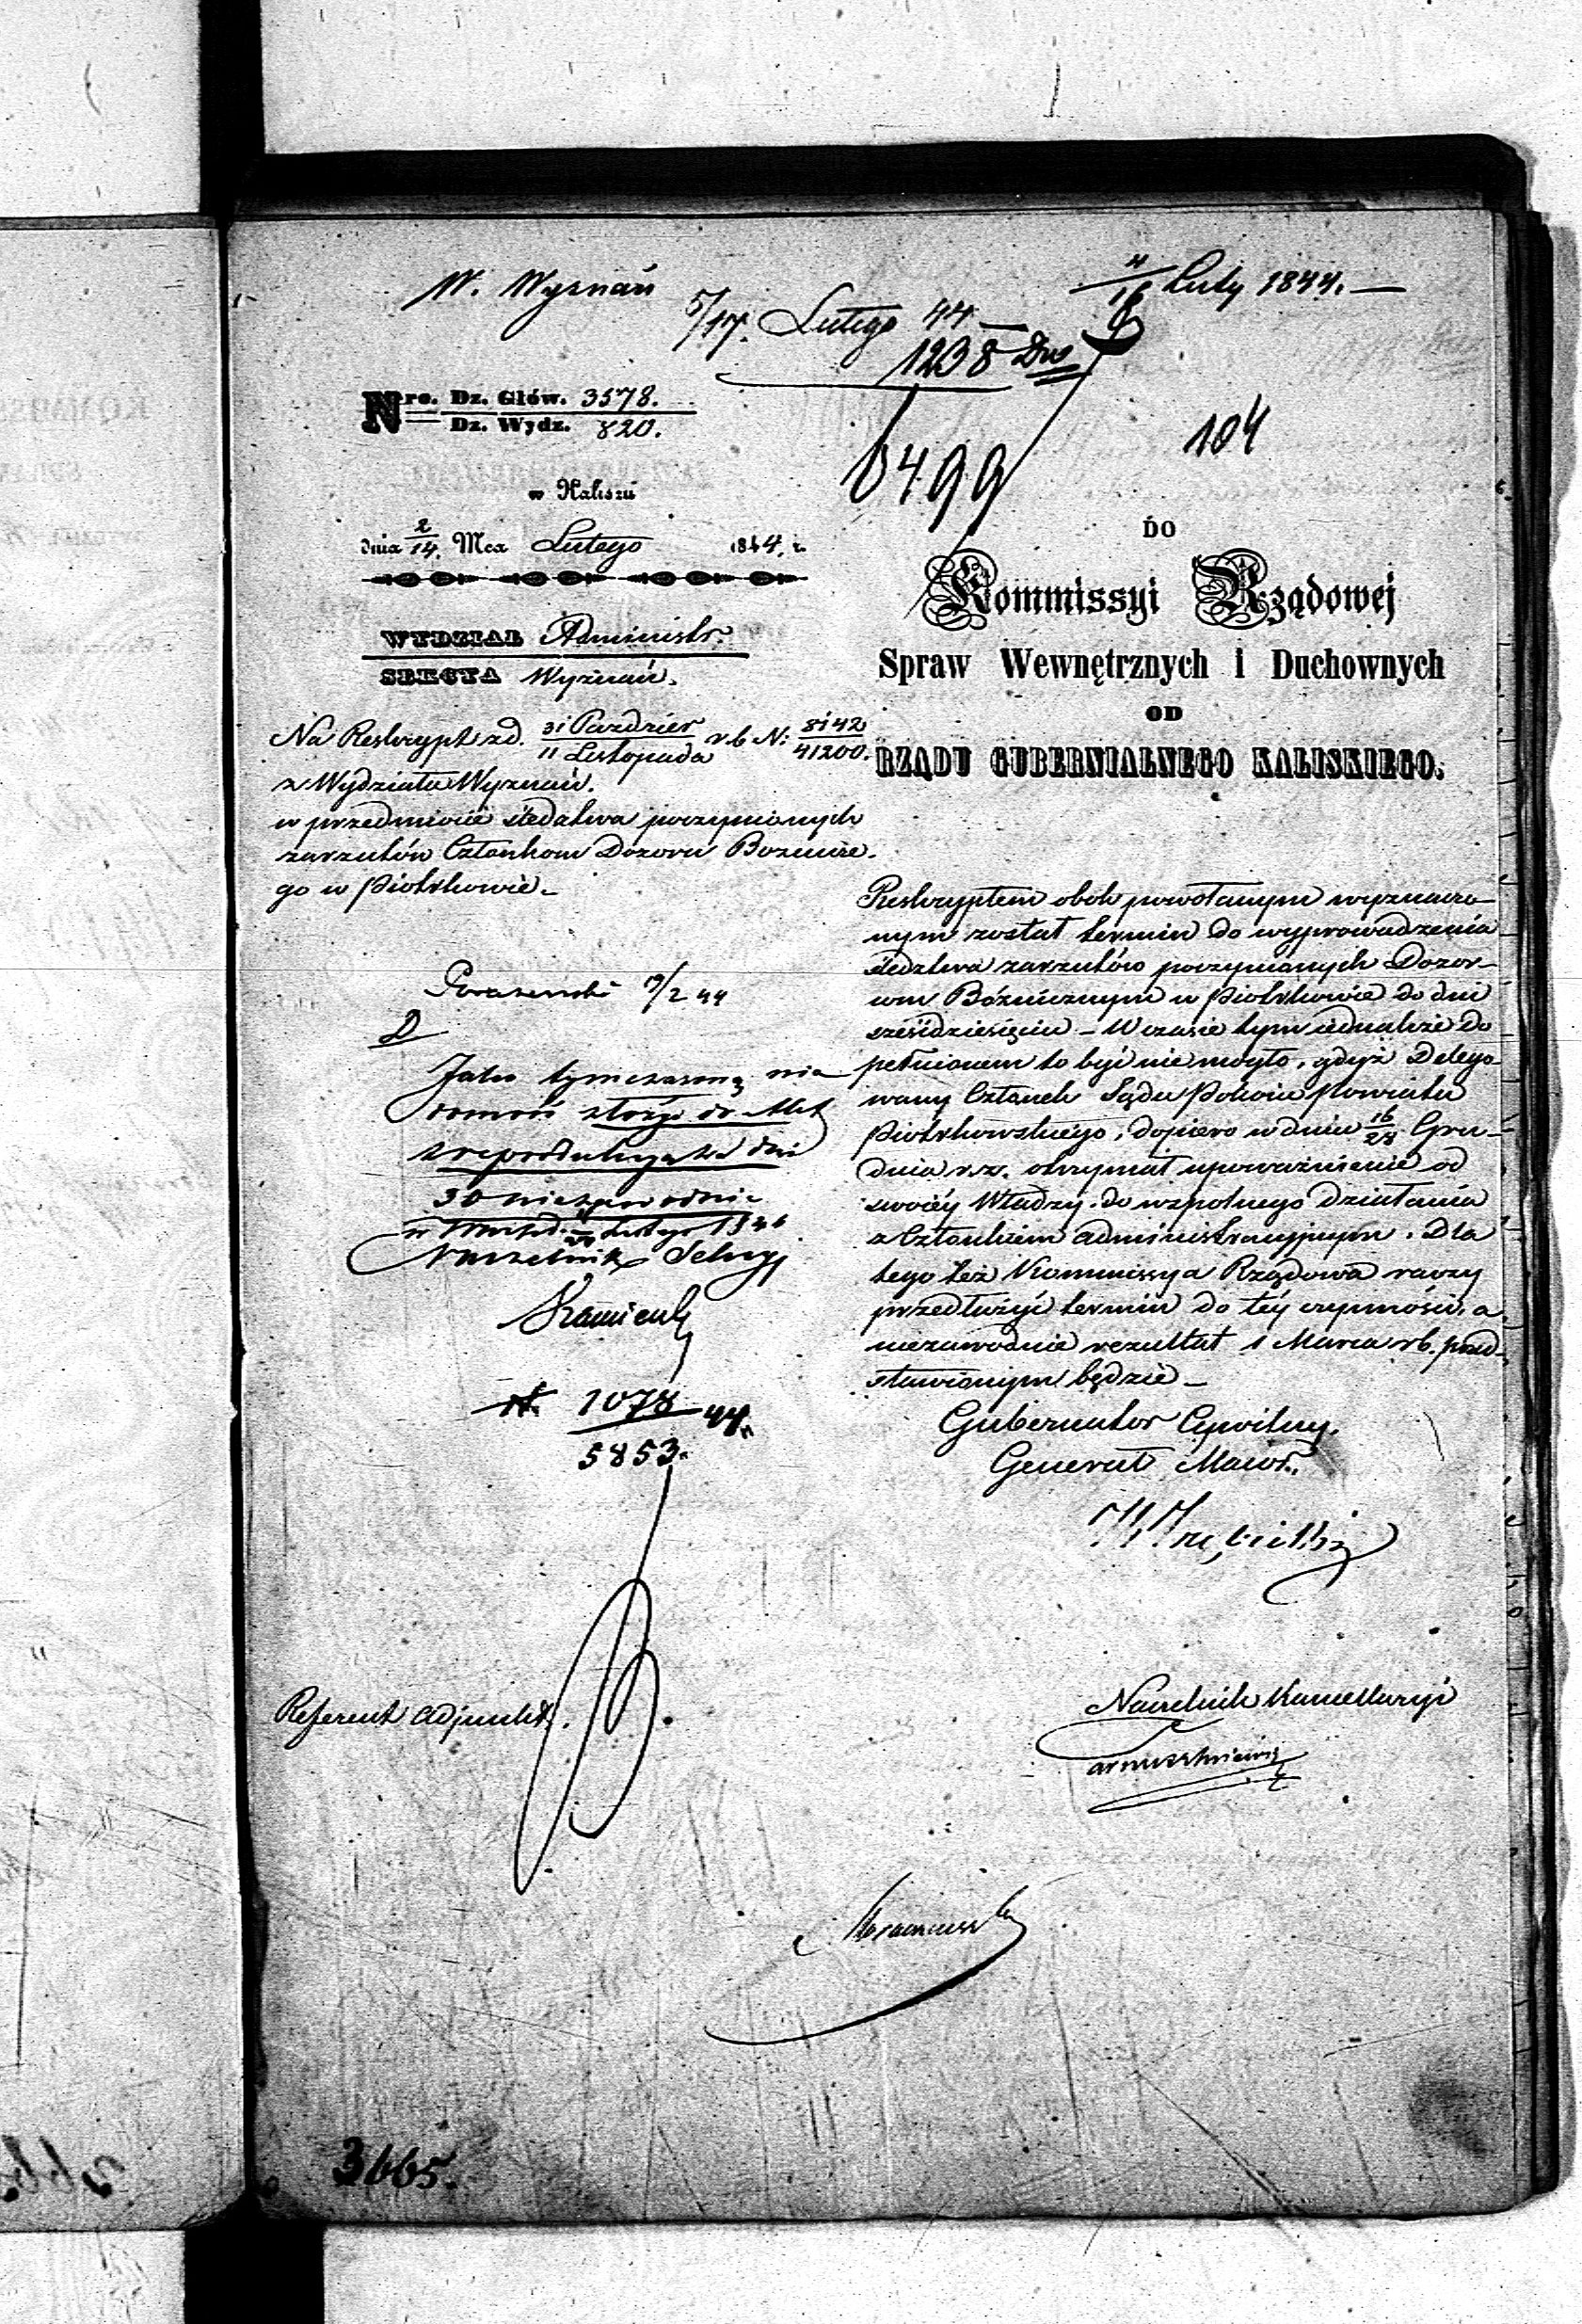 W. Wyznań
4/16 Luty 1844.
5/17. Lutego 44
1238 Dws
6499
104
Nro. Dz. Głów. 3578.
Dz. Wydz. 820.
w Kaliszu
dnia 2/14. Mca Lutego 1844, r.
WYDZIAŁ Administr.
SEKCYA Wyznań.
Na Reskrypt z d. 31 Paździer / 11 Listopada r. b. N: 8142 / 41200.
z Wydziału Wyznań.
w przedmiocie śledztwa poczynionych
zarzutów Członkom Dozoru Boznicze-
go w Piotrkowie.
DO
Kommissyi Rządowej
Spraw Wewnętrznych i Duchownych
OD
RZĄDU GUBERNIALNEGO KALISKIEGO.
Reskryptem obok powołanym wyznaczo-
nym został termin do wyprowadzenia
śledztwa zarzutów poczynionych Dozor-
com Bóżnicznym w Piotrkowie do dni
sześćdziesięciu – W czasie tym jednakże do
pełnionem to być nie mogło, gdyż Delego-
wany Członek Sądu Pokoju Powiatu
Piotrkowskiego, dopiero w dniu 16/28 Gru-
dnia r. z. otrzymał upoważnienie od
swoiéy Władzy do wspolnego działania
z Członkiem administracyjnym. Dla
tego też Kommissya Rządowa raczy
przedłużyć termin do téy czynności, a
niezawodnie rezultat 1 Marca r b. przed-
stawionym będzie –
Gubernator Cywilny.
General Maior.
9/2 44
D
Jako tymczasową wia
domość złożyć do Akt
z reprodukcyą za dni
30 niezawodnie
Lutego
Naczelnik Sekcyi
N. 1078 / 5853. 44
Referent adjunkt.
Naczelnik Kancellaryi
3665.